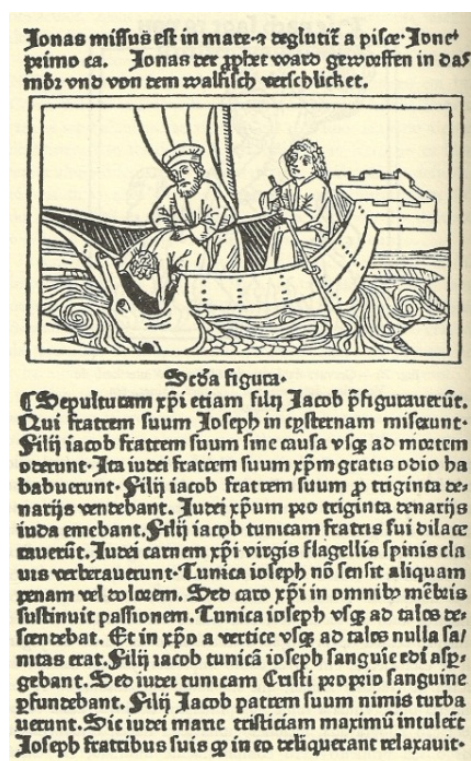 Jonas missus est in mare ⁊ deglutit᷒ a pisce. Jone
primo ca. Jonas der ꝓphet ward geworffen in das
mör vnd von dem walfisch verschlicket.
Scda figura.
¶ Sepulturam xp̄i etiam filij Jacob p̄figurauerūt.
Qui fratrem suum Joseph in cysternam miserunt.
Filij iacob fratrem suum sine causa vsqꝫ ad mortem
oderunt. Ita iudei fratrem suum xp̄m gratis odio ha
babuerunt. Filij iacob fratrem suum ꝓ triginta de-
narijs vendebant. Iudei xp̄um pro triginta denarijs
a iuda emebant. Filij iacob tunicam fratris sui dilace
rauerūt. Iudei carnem xp̄i virgis flagellis spinis cla
uis verberauerunt. Tunica ioseph nō sensit aliquam
penam vel dolorem. Sed caro xp̄i in omnibꝰ mēbris
sustinuit passionem. Tunica ioseph vsqꝫ ad talos de-
scendebat. Et in xp̄o a vertice vsqꝫ ad talos nulla sa/
nitas erat. Filij iacob tunicā ioseph sanguīe edi asp̄r-
gebant. Sed iudei tunicam Cristi proprio sanguine
ꝑfundebant. Filij Jacob patrem suum nimis turba
uerunt. Sic iudei marie tristiciam maximū intulerūt
Joseph fratribus suis qꝫ in eo deliquerant relaxauit.